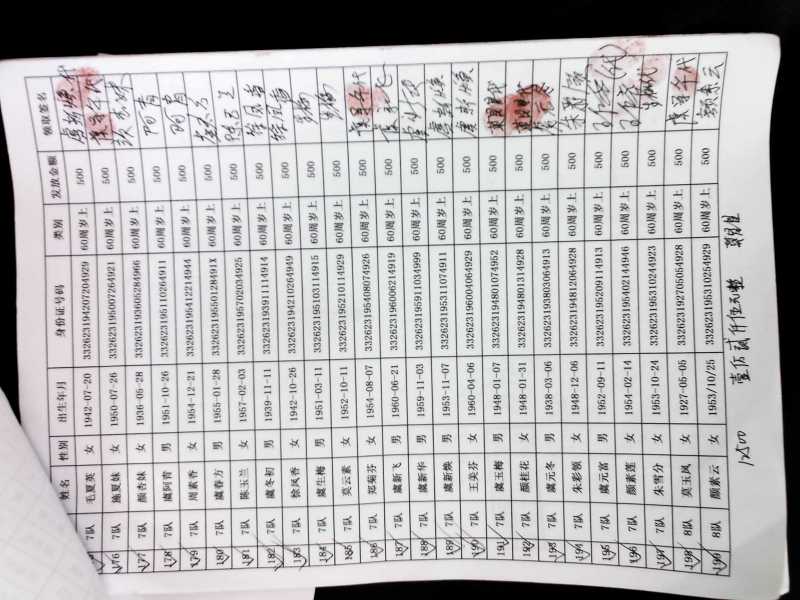 姓名 性别 出生年月 身份证号码 类别 发放金额 领取签名
7队 毛夏英 女 1942-07-20 332623194207204929 60周岁上 500
176 7队 施夏妹 女 1950-07-26 332623195007264921 60周岁上 500
177 7队 颜杏妹 女 1936-05-28 332623193605284966 60周岁上 500
178 7队 虞阿青 男 1951-10-26 332623195110264911 60周岁上 500 阿青
179 7队 周素香 女 1954-12-21 332623195412214944 60周岁上 500 阿青
180 7队 虞春方 男 1955-01-28 33262319550128491X 60周岁上 500
181 7队 陈玉兰 女 1957-02-03 332623195702034925 60周岁上 500 陈玉兰
182 7队 虞冬初 男 1939-11-11 332623193911114914 60周岁上 500 徐凤香
183 7队 徐凤香 女 1942-10-26 332623194210264949 60周岁上 500 徐凤香
184 7队 虞生梅 男 1951-03-11 332623195103114915 60周岁上 500
185 7队 莫云素 女 1952-10-11 332623195210114929 60周岁上 500
186 7队 郑菊芬 女 1954-08-07 332623195408074926 60周岁上 500
187 7队 虞新飞 男 1960-06-21 332623196006214919 60周岁上 500
188 7队 虞新华 男 1959-11-03 332623195911034999 60周岁上 500
189 7队 虞新焕 男 1953-11-07 332623195311074911 60周岁上 500 虞新焕
190 7队 王美芬 女 1960-04-06 332623196004064929 60周岁上 500 虞新焕
191 7队 虞玉梅 男 1948-01-07 332623194801074952 60周岁上 500
192 7队 颜桂花 女 1948-01-31 332623194801314928 60周岁上 500
193 7队 虞元冬 男 1938-03-06 332623193803064913 60周岁上 500
194 7队 朱彩领 女 1948-12-06 332623194812064928 60周岁上 500
195 7队 虞元富 男 1952-09-11 332623195209114913 60周岁上 500
196 7队 颜素莲 女 1954-02-14 332623195402144946 60周岁上 500
197 7队 朱雪分 女 1953-10-24 332623195310244923 60周岁上 500
198 8队 莫玉凤 女 1927-05-05 332623192705054928 60周岁上 500
199 8队 颜素云 女 1953/10/25 332623195310254929 60周岁上 500 颜素云
12500 壹万贰仟伍佰元整